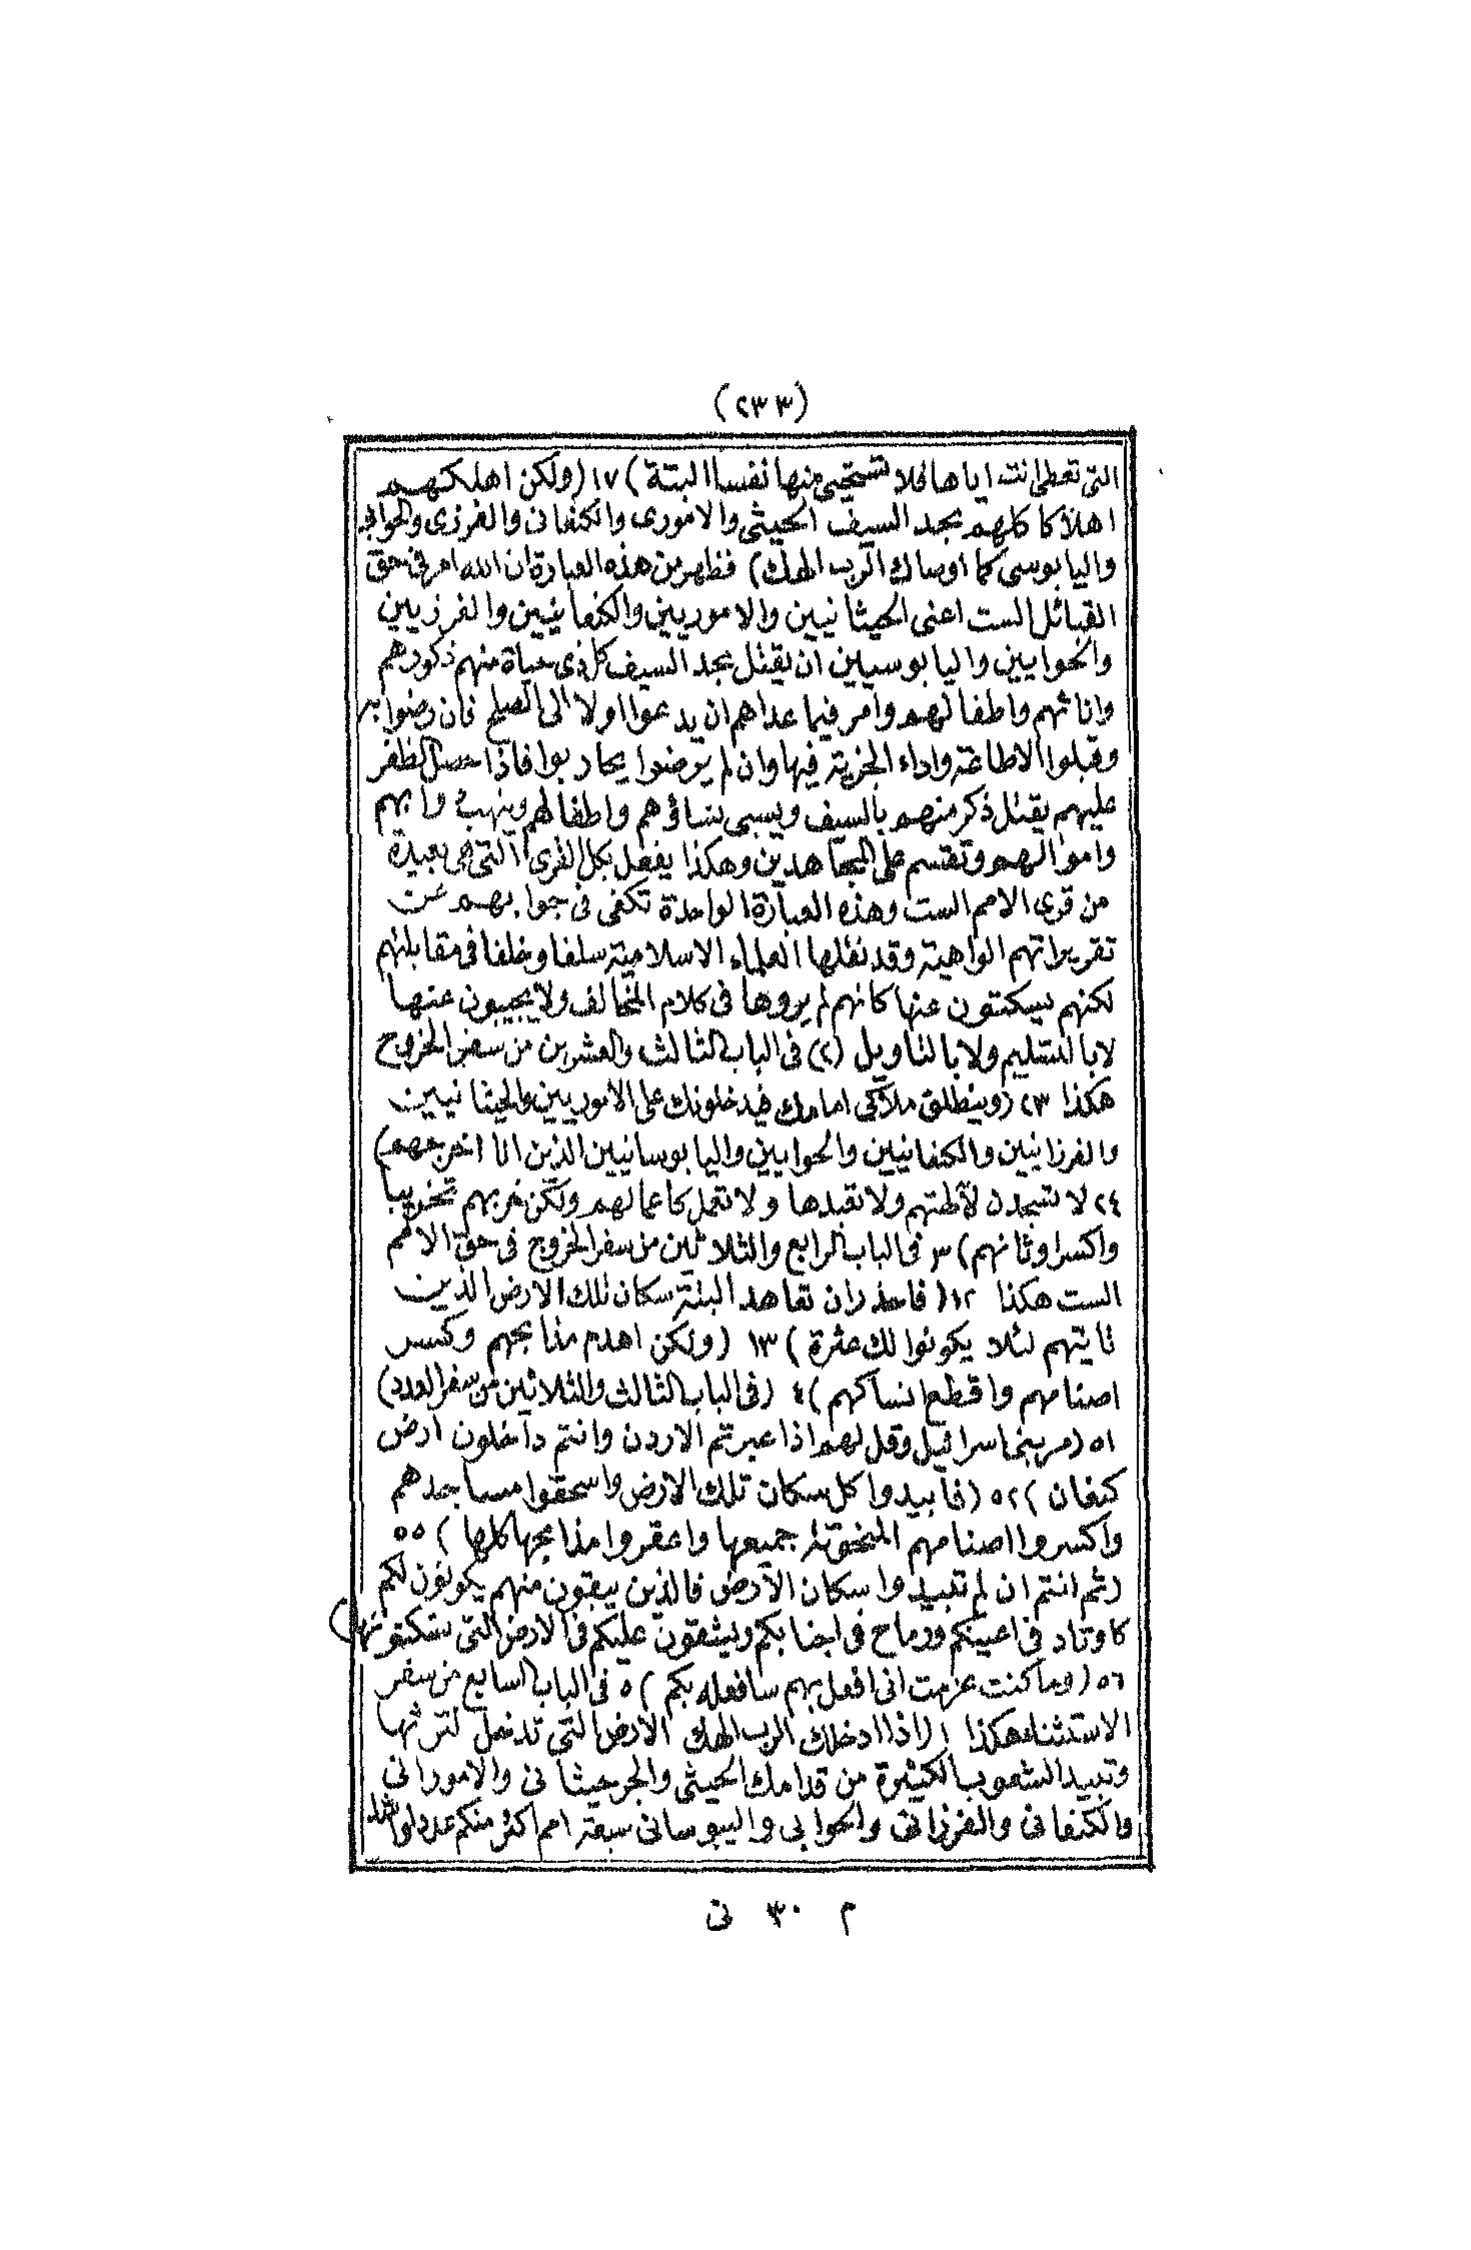 (٢٣٣)
التى تعطى انت اياها فلا تستحيى منها نفسا البتة) ١٧ (ولكن اهلكهم
اهلاكا كلهم بحد السيف الحيثى والامورى والكنعانى والفرزى والحوايى
واليابوسى كما اوصاك الرب الهك) فظهر من هذه العبارة ان الله امر فى حق
القبائل الست اعنى الحيثانيين والاموريين والكنعانيين والفرزيين
والحوايين واليابوسيين ان يقتل بحد السيف كل ذى حياة منهم ذكورهم
واناثهم واطفالهم وامر فيما عداهم ان يدعوا اولا الى الصلح فان رضوا به
وقبلوا الاطاعة واداء الجزية فبها وان لم يرضوا يحاربوا فاذا حصل الظفر
عليهم يقتل ذكر منهم بالسيف ويسبى نساؤهم واطفالهم وينهب دوابهم
واموالهم وتقسم على المجاهدين وهكذا يفعل بكل القرى التى هى بعيدة
من قرى الامم الست وهذه العبارة الواحدة تكفى فى جوابهم عن
تقريراتهم الواهية وقد نقلها العلماء الاسلامية سلفا وخلفا فى مقابلتهم
لكنهم يسكتون عنها كانهم لم يروها فى كلام المخالف ولا يجيبون عنها
لا بالتسليم ولا بالتاويل (٢) فى الباب الثالث والعشرين من سفر الخروج
هكذا ٢٣ (وينطلق ملاكى امامك فيدخلونك على الاموريين والحيثانيين
والفرزانيين والكنعانيين والحوايين واليابوسانيين الذين انا اخرجهم)
٢٤ لا تسجدن لآلهتهم ولا تعبدها ولا تعمل كاعمالهم ولكن خربهم تخريبا
واكسر اوثانهم) ٣ فى الباب الرابع والثلاثين من سفر الخروج فى حق الامم
الست هكذا ١٢ (فاحذر ان تعاهد البتة سكان تلك الارض الذين
تايتهم لئلا يكونوا لك عثرة) ١٣ (ولكن اهدم مذابحهم وكسر
اصنامهم واقطع انساكهم) ٤ (فى الباب الثالث والثلاثين من سفر العدد)
٥١ (مر بنى اسرائيل وقل لهم اذا عبرتم الاردن وانتم داخلون ارض
كنعان) ٥٢ (فابيدوا كل سكان تلك الارض واسحقوا مساجدهم
واكسروا اصنامهم المنحوتة جميعها واعقروا مذابحها كلها) ٥٥
(ثم انتم ان لم تبيدوا سكان الارض فالذين يبقون منهم يكونون لكم
كاوتاد فى اعينكم ورماح فى اجنابكم ويشقون عليكم فى الارض التى تسكنونها)
٥٦ (وما كنت عزمت انى افعل بهم سافعله بكم) ٥ فى الباب السابع من سفر
الاستثناء هكذا ١ (اذا ادخلك الرب الهك الارض التى تدخل لترثها
وتبيد الشعوب الكثيرة من قدامك الحيثى والجرجيثانى والامورانى
والكنعانى والفرزانى والحوايى واليبوسانى سبعة امم اكثر منكم عددا واشد
م ٣٠ نى